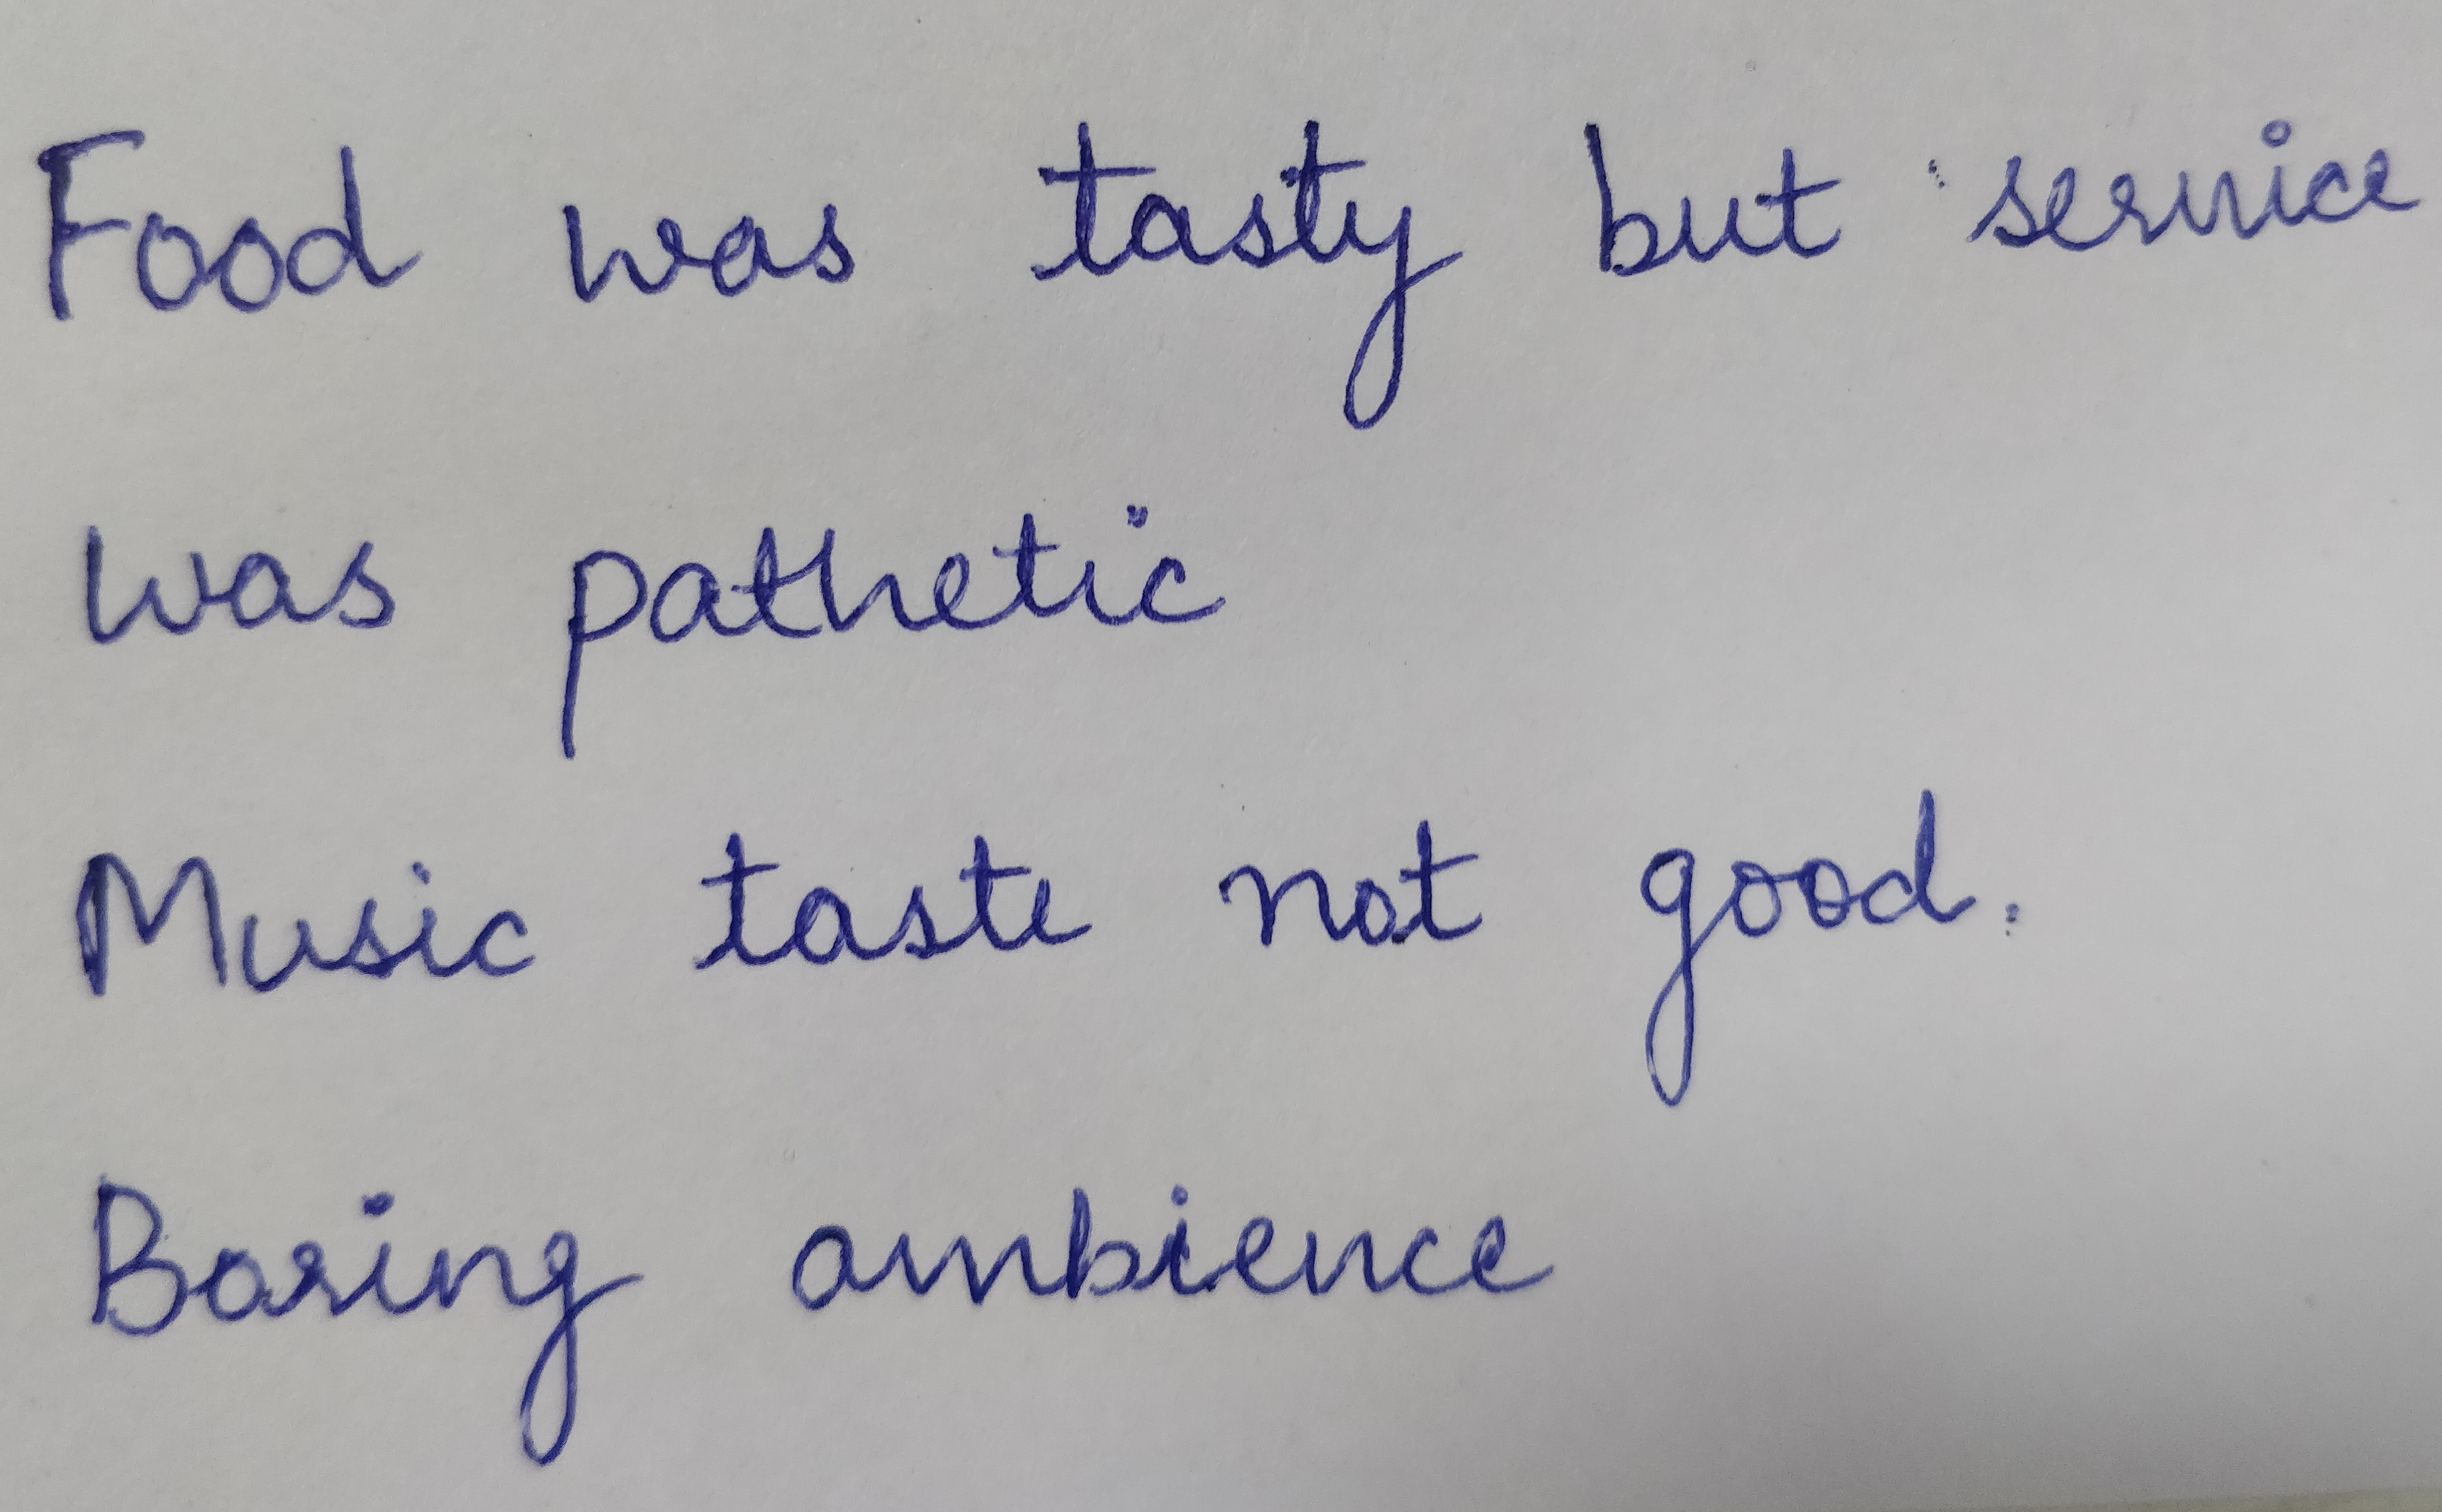 Food was tasty but service
was pathetic
Music taste not good.
Boring ambience